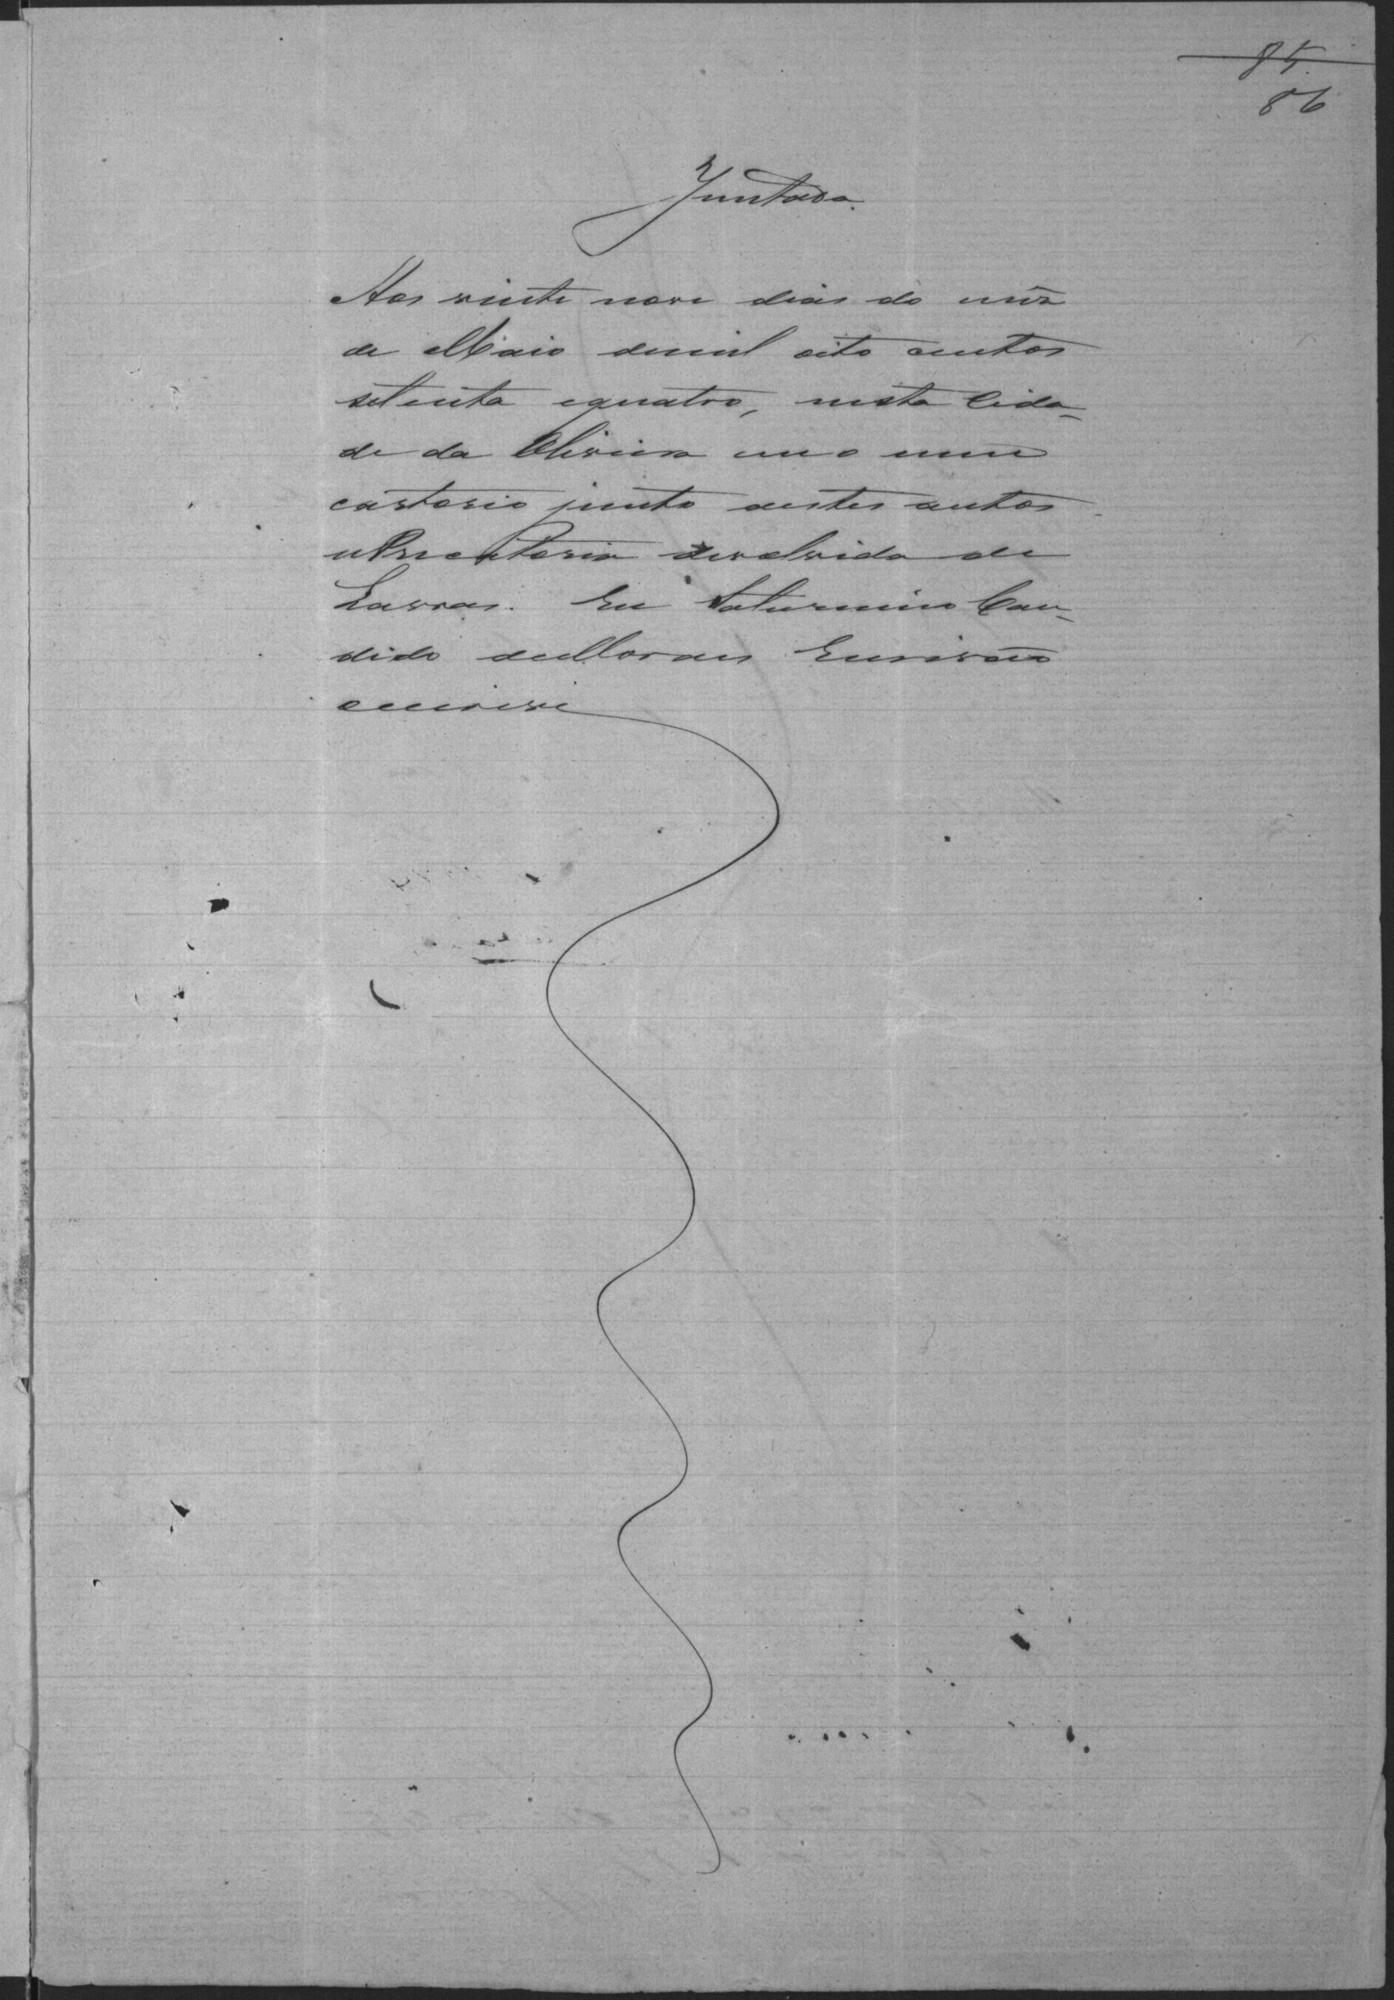 85
86
Juntada.
Aos vinte nove dias do mez
de Maio demil oito centos
setenta equatro, nesta Cida-
de da Oliveira em o meu
cartorio junto aestes autos
aPrecatoria devolvida de
Lavras. Eu Saturnino Can-
dido deMoraes Escrivão
escrevi